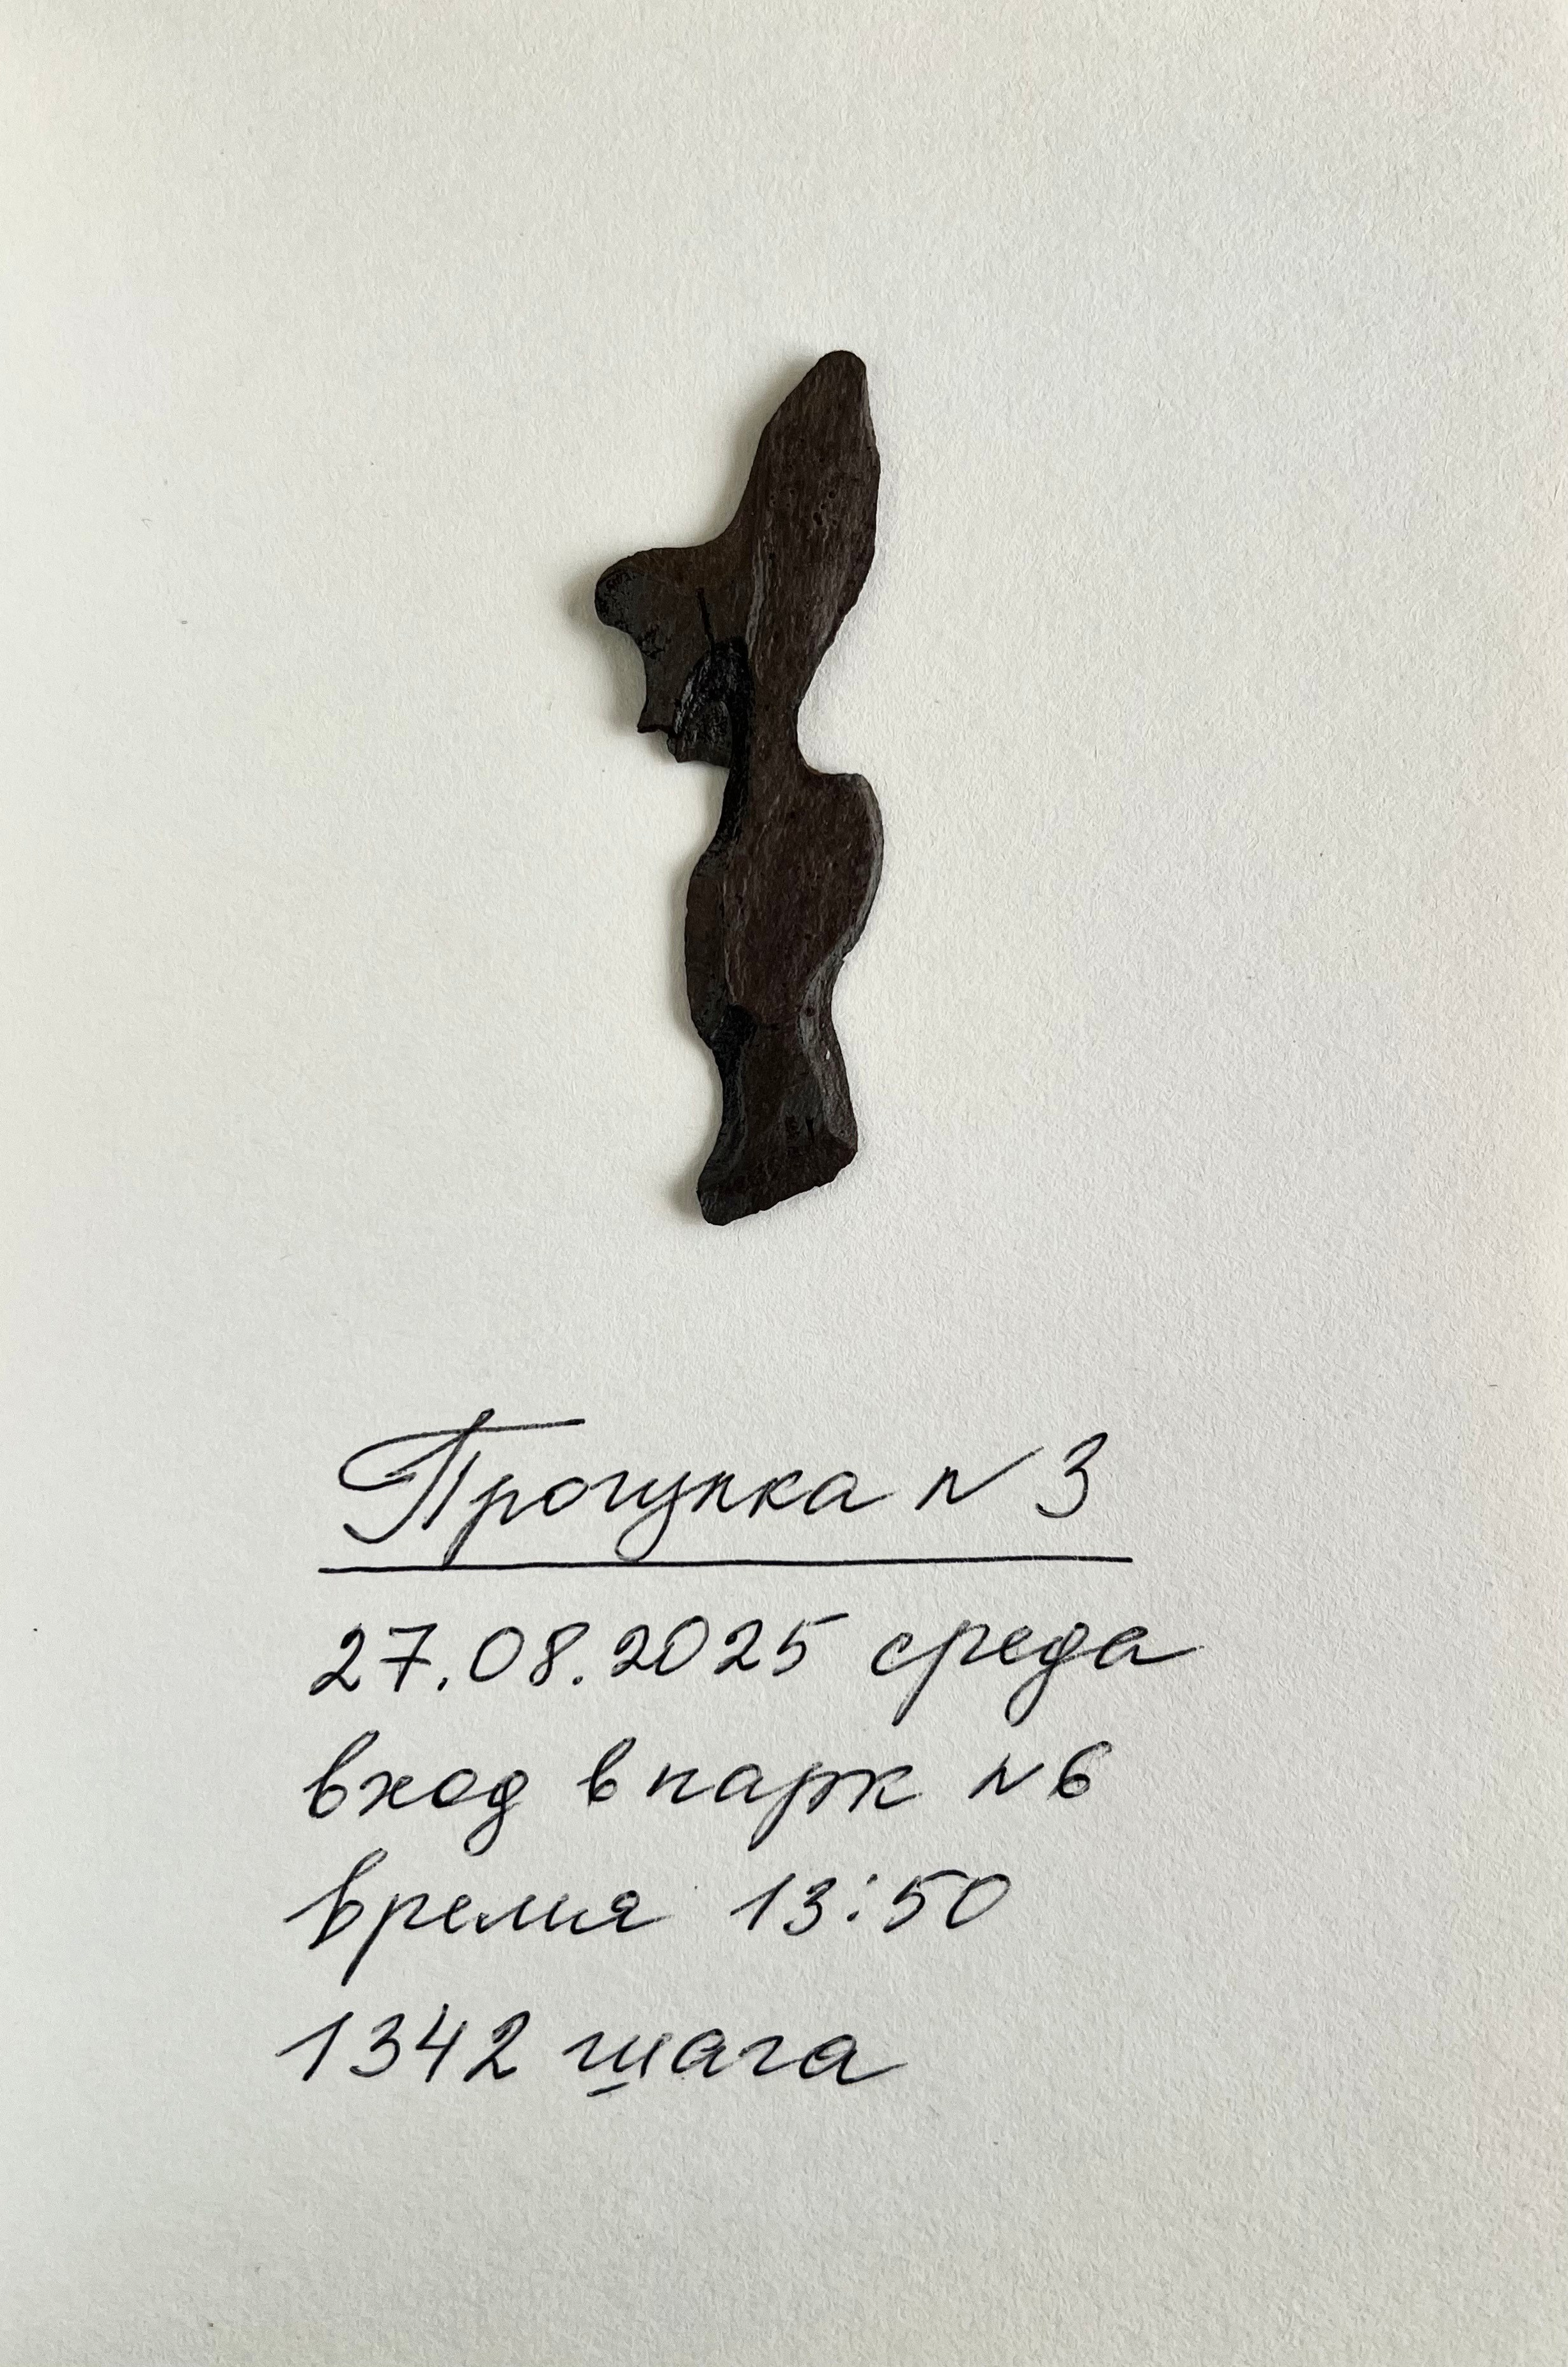 Прогулка N 3
27.08.2025 среда
вход в парк N6
время 13:50
1342 шага